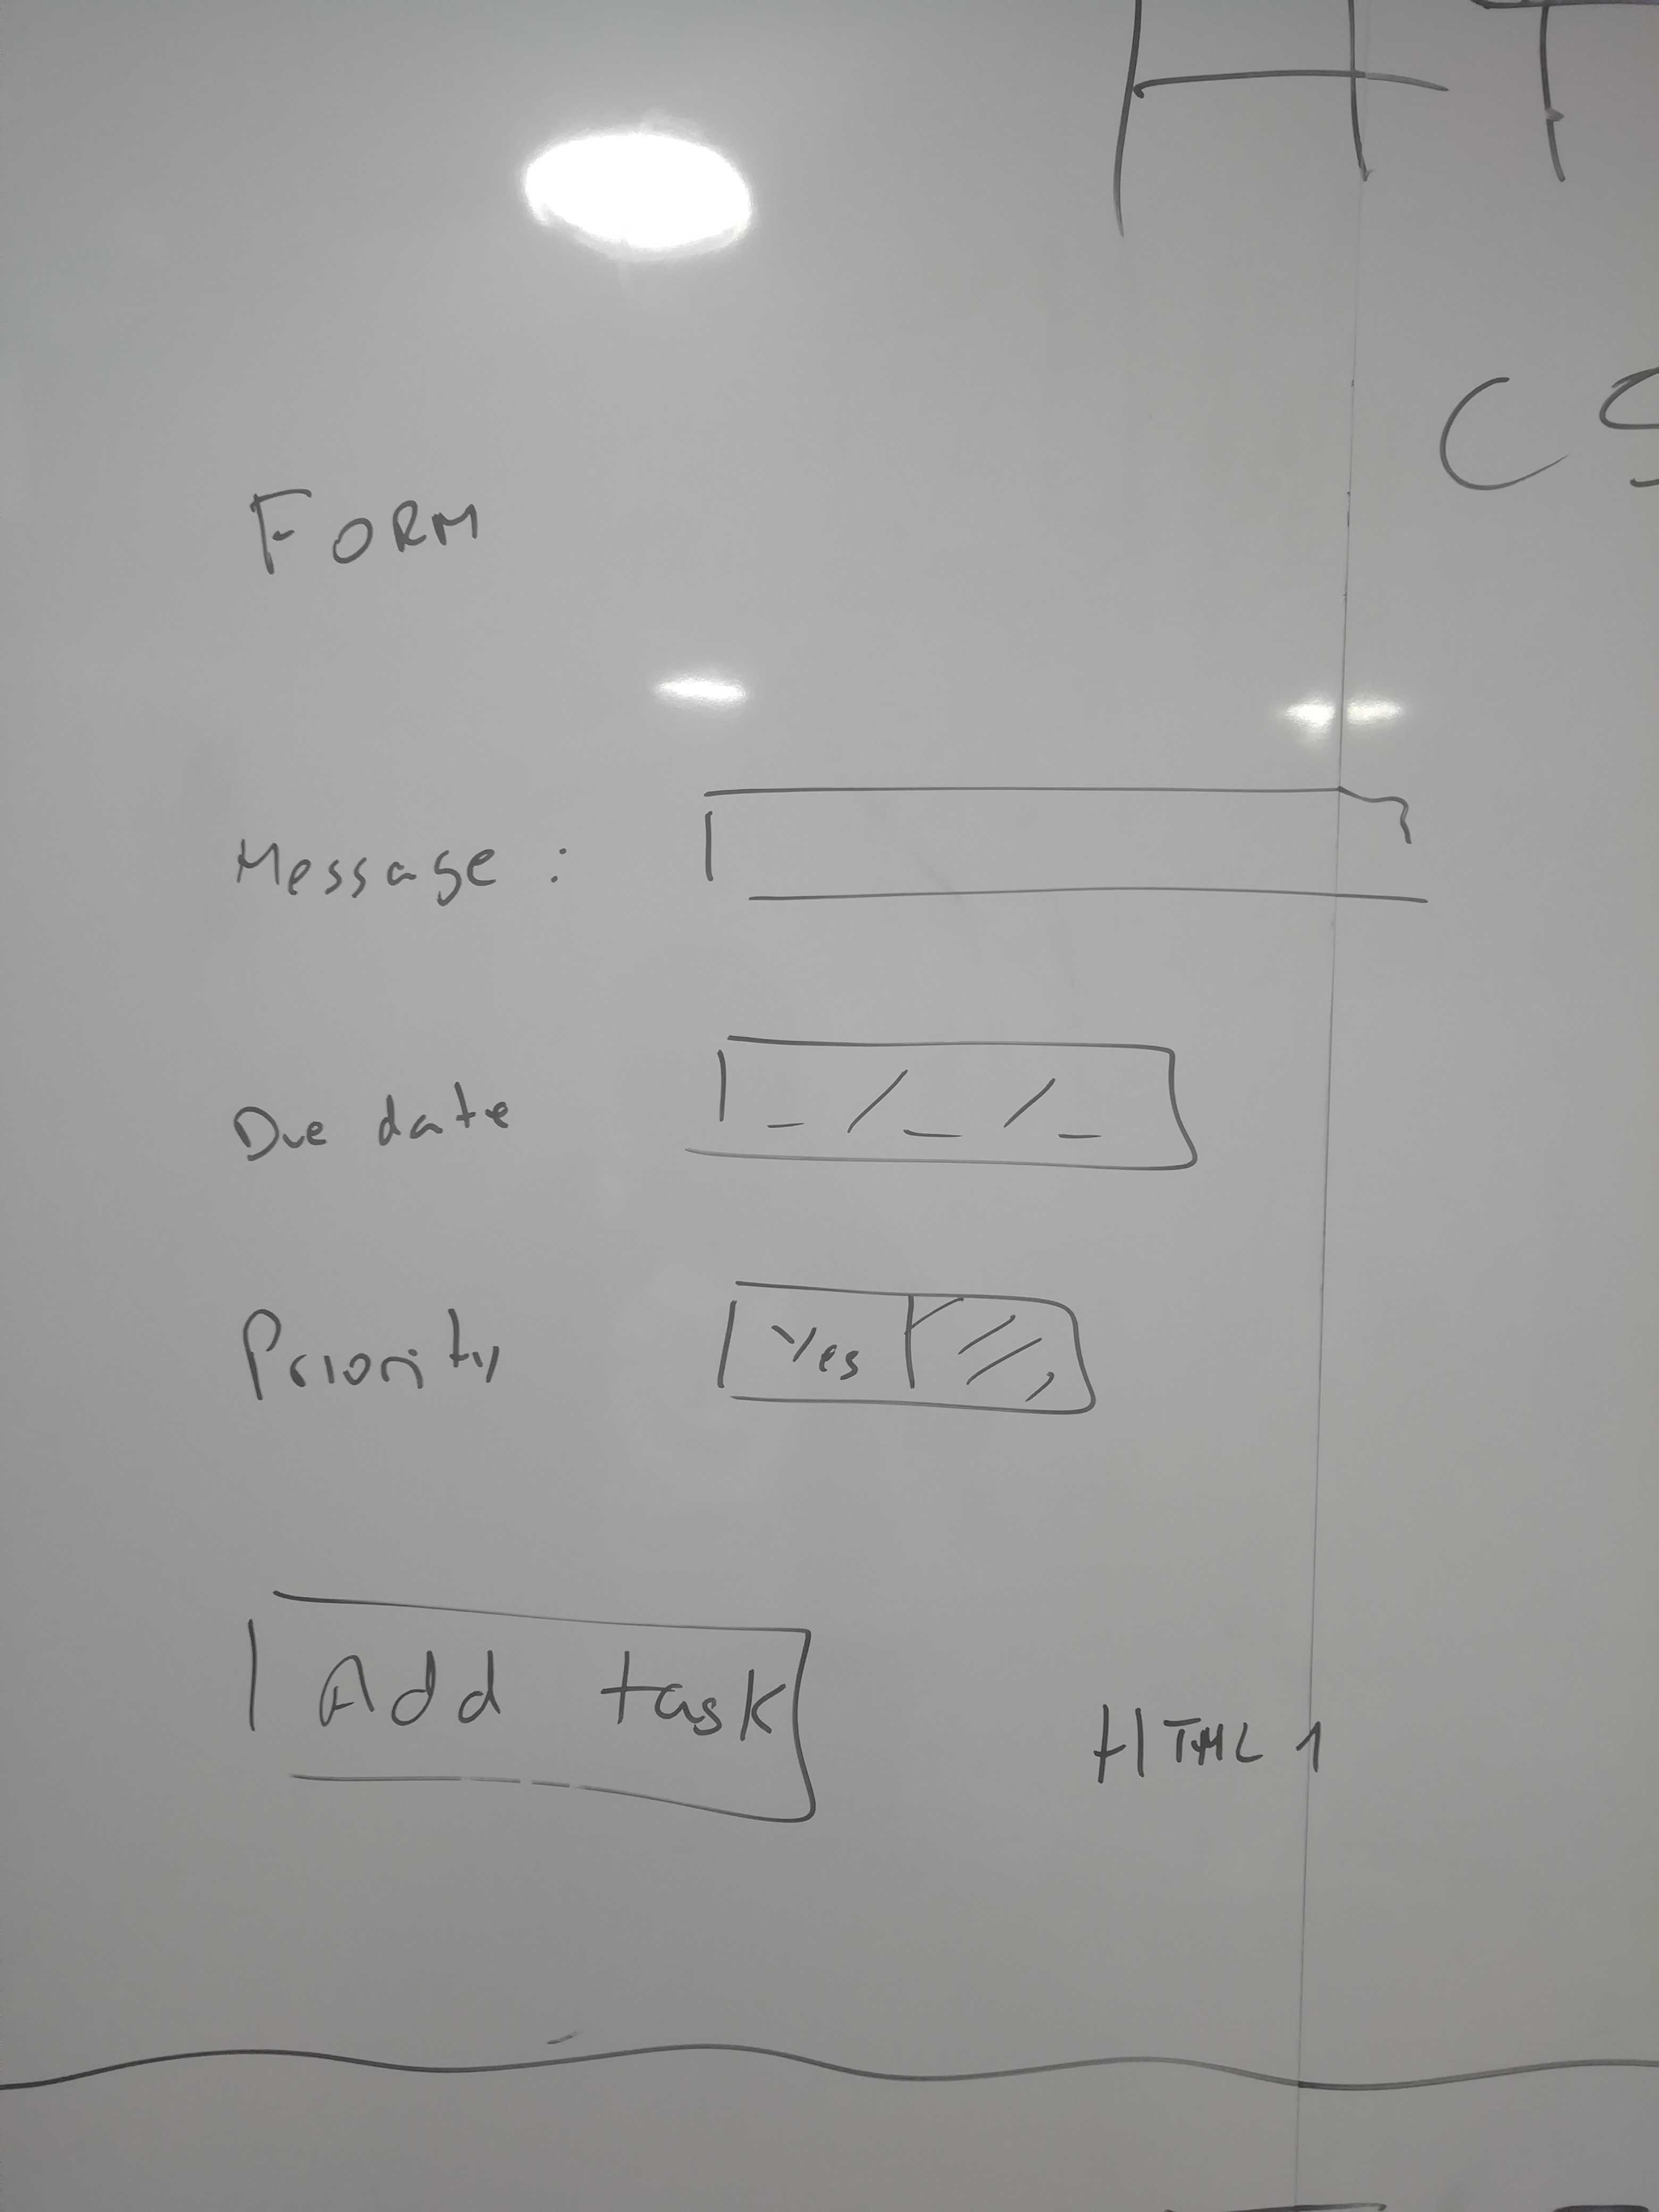 HT
CS
FORM
Message :
Due date _ / _ / _
Priority Yes
Add task
HTML 1